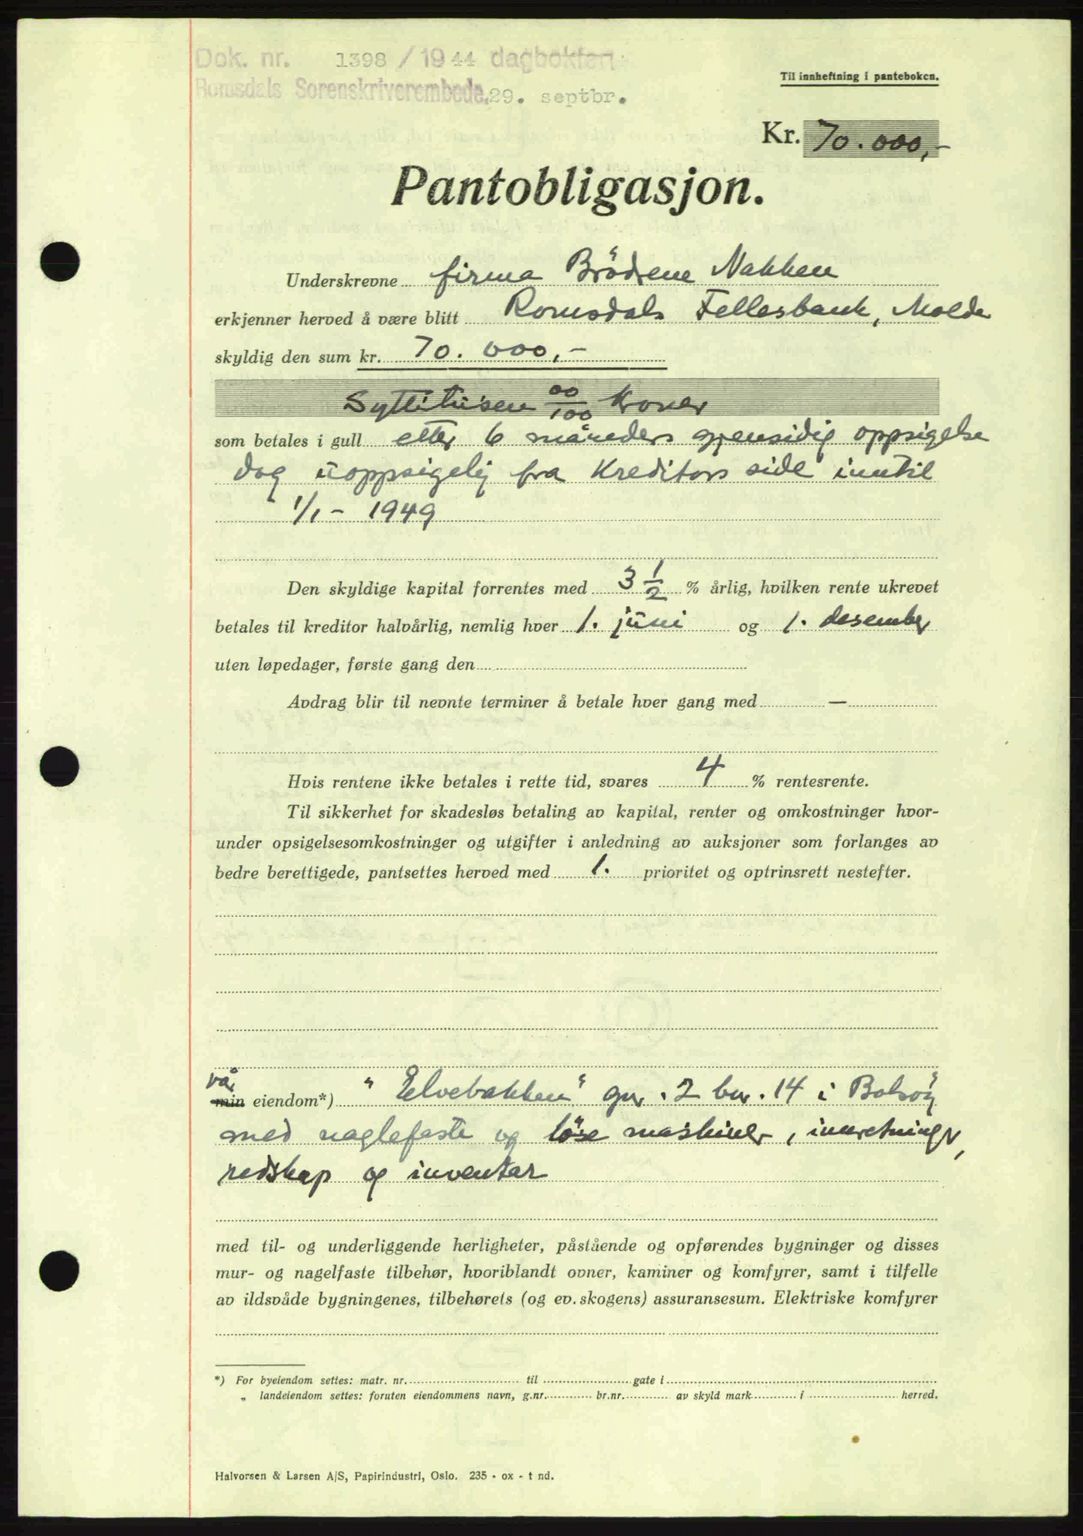 Dok. nr. 1398 / 1944 dagbokført
Romsdals Sorenskriverembede, 29. septbr.
Til innheftning i panteboken.
Kr. 70.000,-
Pantobligasjon.
Underskrevne firma Brödrene Nakken
erkjenner herved å være blitt Romsdals Fellesbank, Molde
skyldig den sum kr. 70.000,-
Syttitusen 00/100 Kroner
som betales i gull etter 6 måneders gjensidig oppsigelse
dog uoppsigelig fra Kreditors side inntil
1/1 - 1949
Den skyldige kapital forrentes med 3 1/2 % årlig, hvilken rente ukrevet
betales til kreditor halvårlig, nemlig hver 1. juni og 1. desember
uten løpedager, første gang den
Avdrag blir til nevnte terminer å betale hver gang med —
Hvis rentene ikke betales i rette tid, svares 4 % rentesrente.
Til sikkerhet for skadesløs betaling av kapital, renter og omkostninger hvor-
under opsigelsesomkostninger og utgifter i anledning av auksjoner som forlanges av
bedre berettigede, pantsettes herved med 1. prioritet og optrinsrett nestefter.
vår
min eiendom*) "Elvebakken" gnr. 2 bnr. 14 i Bolsöy
med naglefaste og löse maskiner, innretninger,
redskap og inventar
med til- og underliggende herligheter, påstående og opførendes bygninger og disses
mur- og nagelfaste tilbehør, hvoriblandt ovner, kaminer og komfyrer, samt i tilfelle
av ildsvåde bygningenes, tilbehørets (og ev. skogens) assuransesum. Elektriske komfyrer
*) For byeiendom settes: matr. nr. til gate i
„ landeiendom settes: foruten eiendommens navn, g.nr. br.nr. av skyld mark i herred.
Halvorsen & Larsen A/S, Papirindustri, Oslo. 235 - ox - t nd.